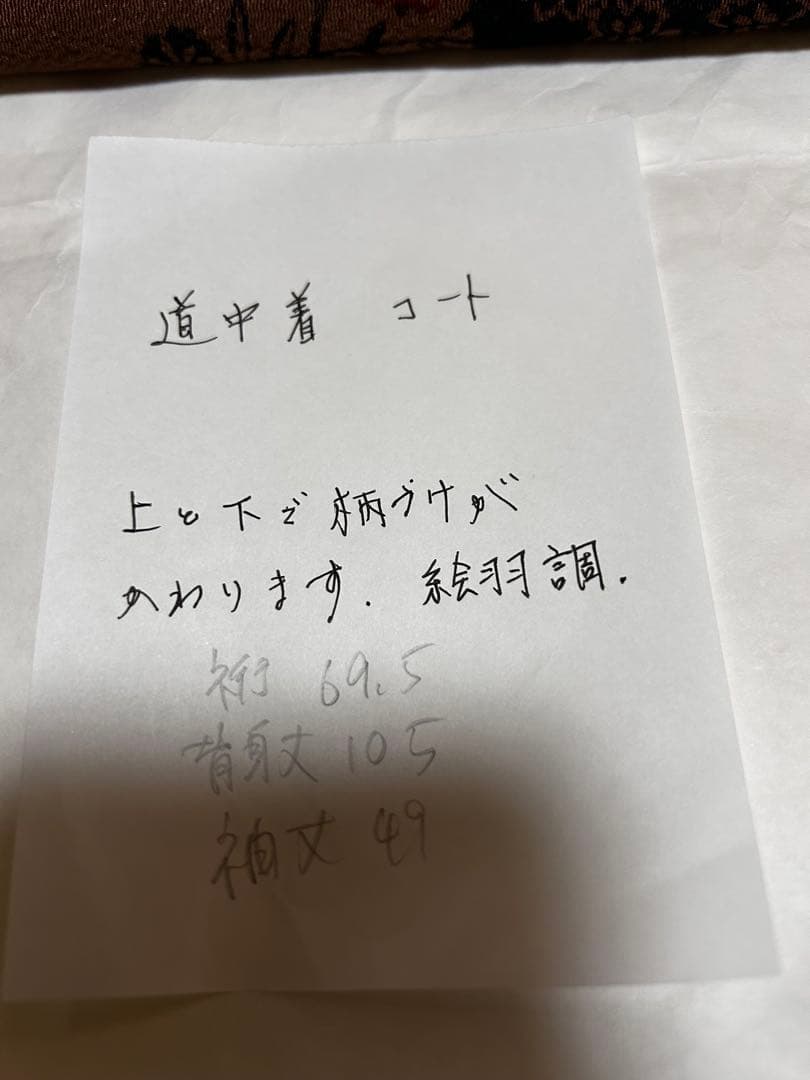 道中着 コート
上と下で柄づけが
かわります. 絵羽調.
裄 69.5
背身丈 105
袖丈 49